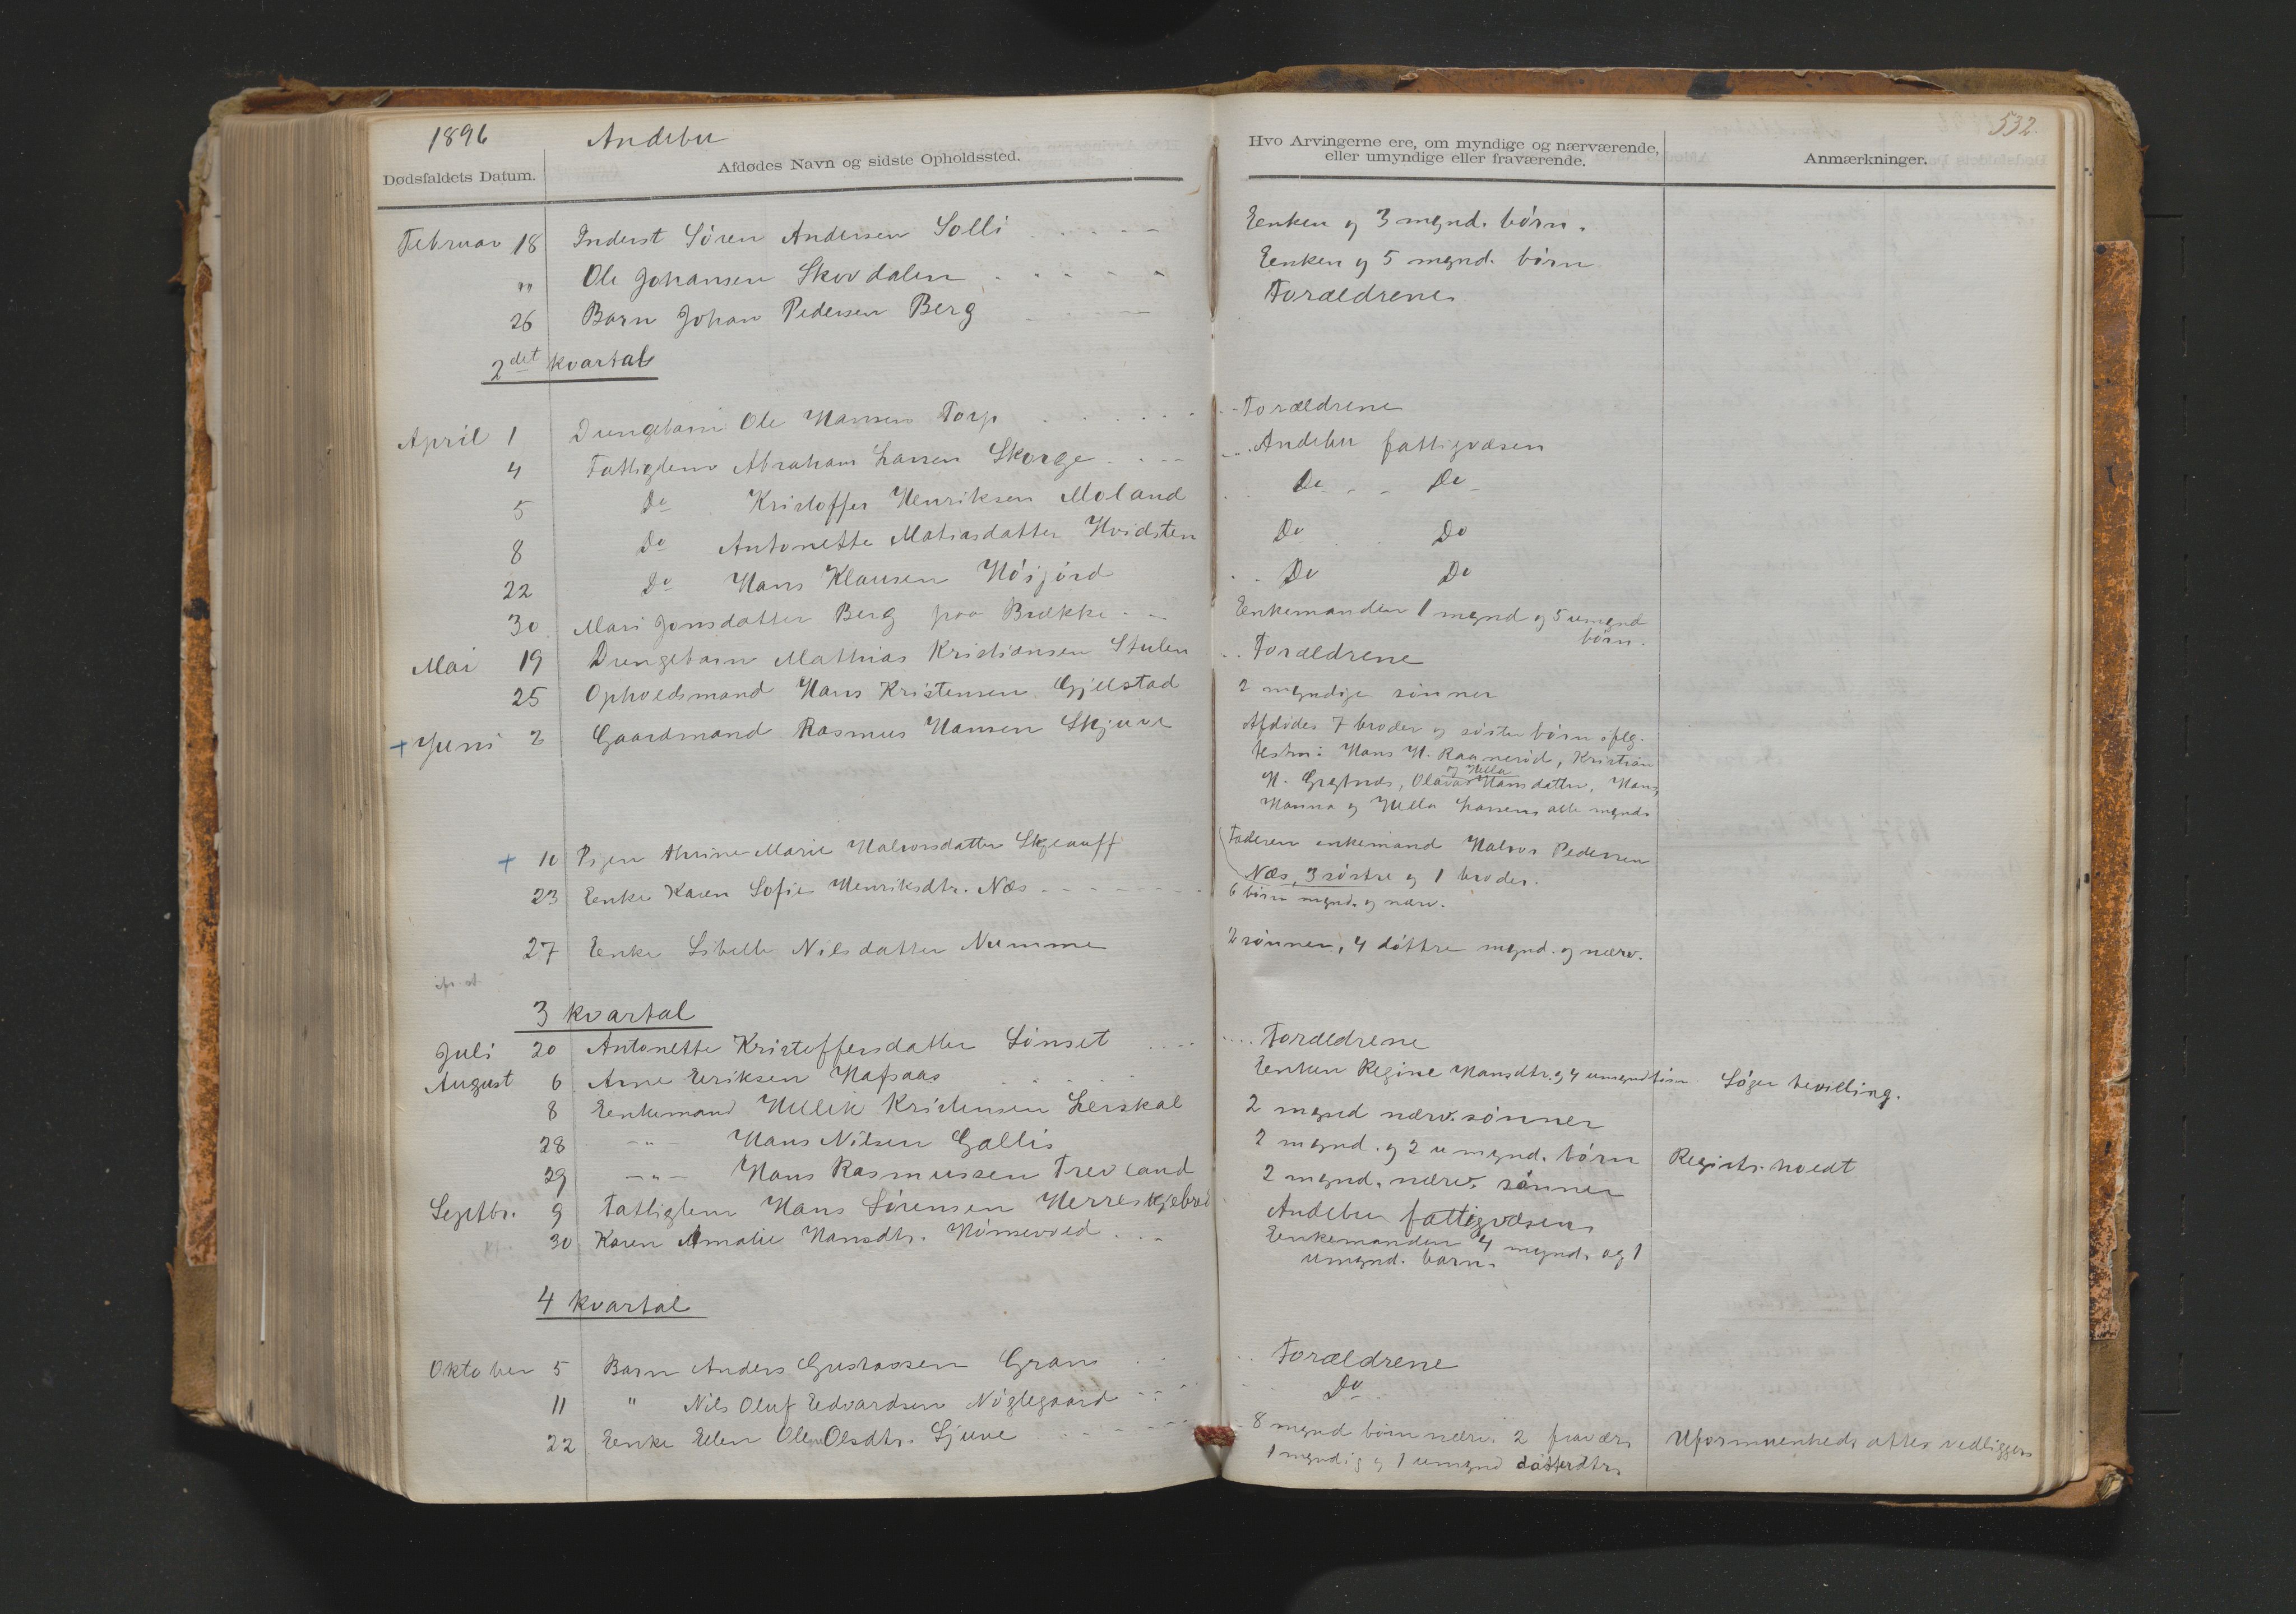 1896 Andebu
532.
Dødsfaldets Datum. Afdødes Navn og sidste Opholdssted. Hvo Arvingerne ere, om myndige og nærværende, eller umyndige eller fraværende. Anmærkninger.
Februar 18 Inderst Søren Andersen Solli Eenken og 3 mynd. børn.
" Ole Johansen Skovdalen Eenken og 5 mynd. børn
26 Barn Johan Pedersen Berg Forældrene
2det kvartal
April 1 Drengebarn Ole Hansen Torp Forældrene
4 Fattiglem Abraham Larsen Skorge Andebu fattigvæsen
5 Do Kristoffer Henriksen Moland Do Do
8 Do Antonette Matiasdatter Hvidsten Do Do
22 Do Hans Klausen Høijord Do Do
30 Mari Jonsdatter Berg paa Brække Enkemanden 1 mynd og 5 umynd
børn.
Mai 19 Drengebarn Mathias Kristiansen Stulen Forældrene
25 Opholdsmand Hans Kristensen Gjelstad 2 myndige sønner
+ Juni 2 Gaardmand Rasmus Hansen Skjuve Afdødes 7 broder og søster børn iflg.
testm: Hans H. Ragnerød, Kristian
og Hella
H. Gryhnds, Olava Hansdatter, Hans,
Hanna og Hella Larsens alle mynd.
+ 10 Pigen Thrine Marie Halvorsdatter Skjeauff Faderen enkemand Halvor Pedersen
Næs, 3 søstre og 1 broder.
23 Eenke Karen Sofie Henriksdtr. Næs 6 børn mynd. og nærv.
27 Eenke Sibille Nilsdatter Numme 2 sønner, 4 døttre mynd. og nærv.
3 kvartal
Juli 20 Antonette Kristoffersdatter Sønset Forældrene
August 6 Arne Eeriksen Hafsaas Eenken Regine Hansdtr. og 4 umynd børn Søger bevilling.
8 Eenkemand Hellek Kristensen Lerskal 2 mynd nærv. sønner
28 -"- Hans Nilsen Gallis 2 mynd. og 2 umynd. børn Registr. holdt
29 -"- Hans Rasmussen Trevland 2 mynd. nærv. sønner
Septbr. 9 Fattiglem Hans Sørensen Herreskjebrød Andebu fattigvæsen
30 Karen Amalie Hansdtr. Hømevold Eenkemanden 4 mynd. og 1
umynd. barn.
4 kvartal
Oktober 5 Barn Anders Gustavsen Gran Forældrene
11 " Nils Oluf Eedvardsen Nøglegaard Do
22 Eenke Eelen Olea Olsdtr. Sjuve 8 mynd børn nærv. 2 fravær. Uformuenheds attes vedligger
1 myndig og 1 umynd datterdtr.